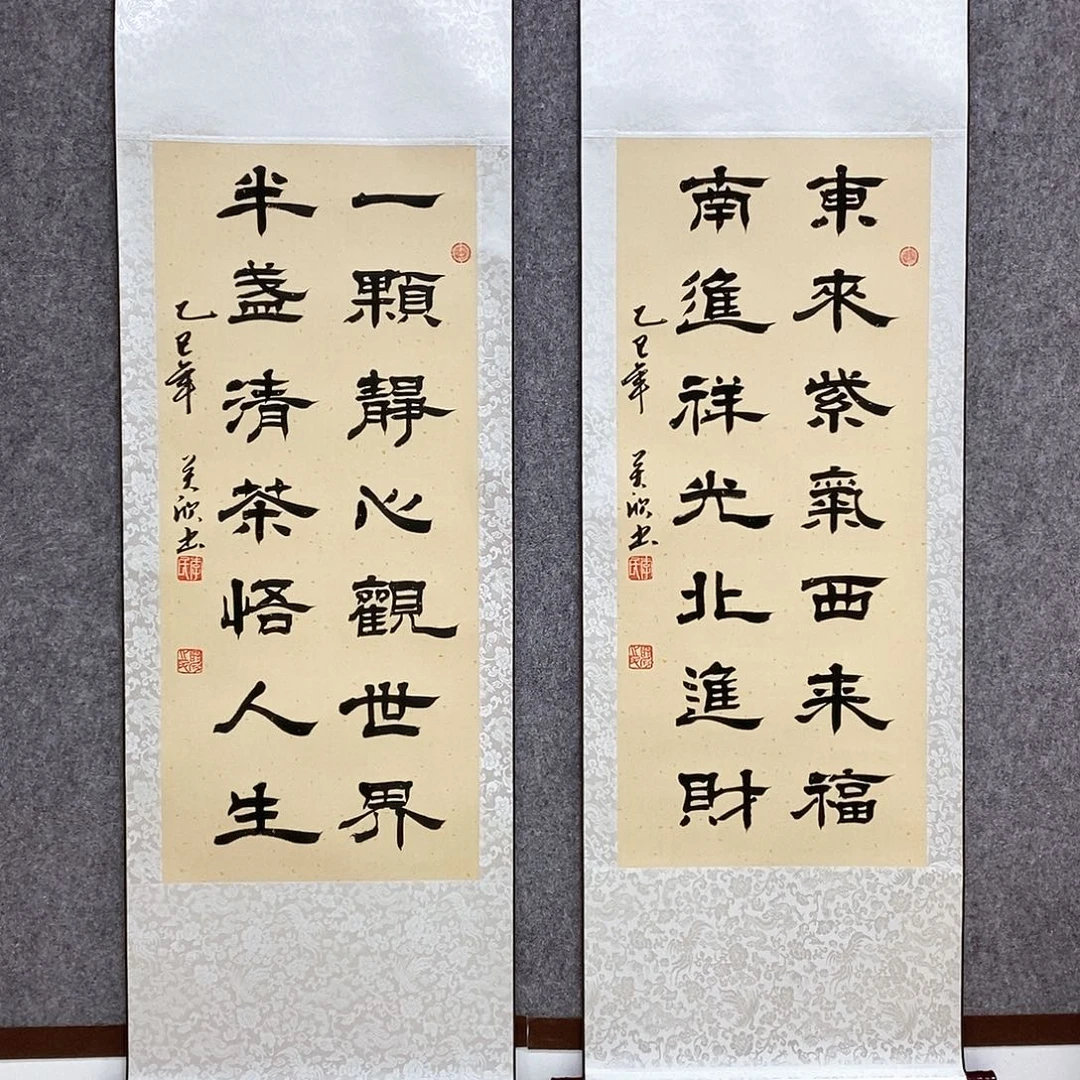 東來紫氣西来福
南進祥光北進財
乙巳年 欣书
一顆靜心觀世界
半盞清茶悟人生
乙巳年 欣书